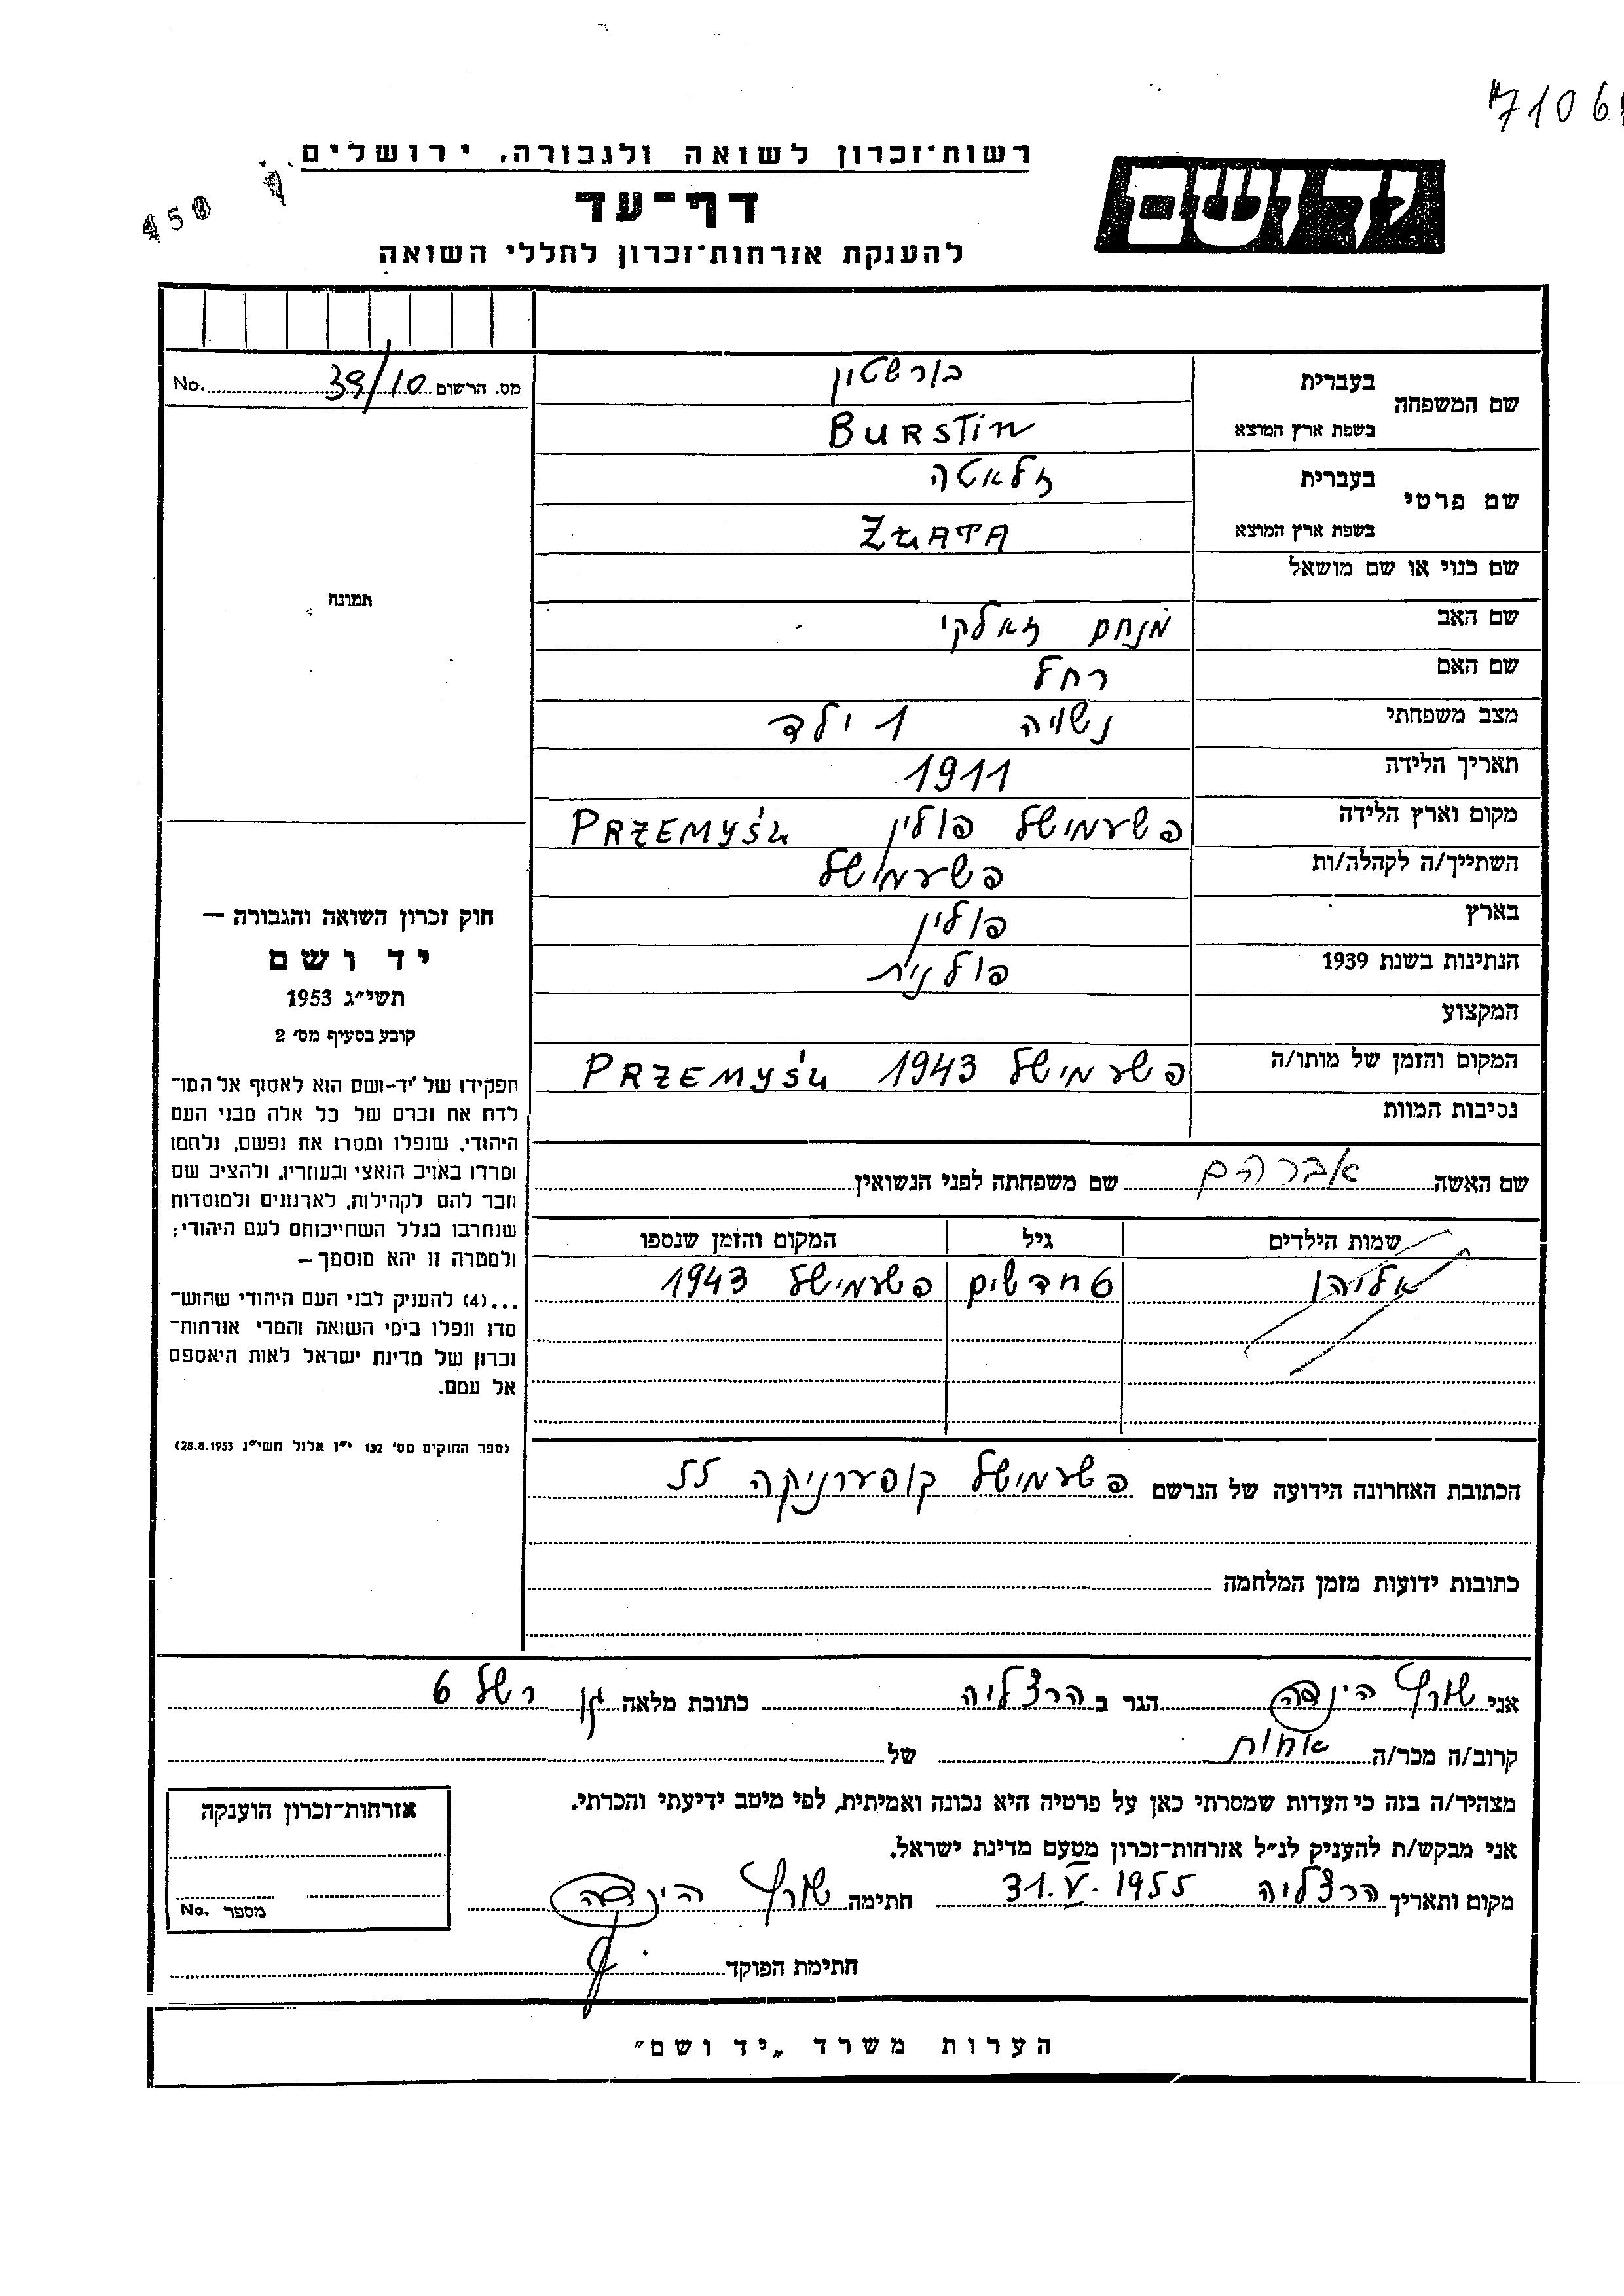 7106
רשות־זכרון לשואה ולגבורה, ירושלים
יד ושם
דף־עד
450
להענקת אזרחות־זכרון לחללי השואה
מס. הרשום 39/10 No.
שם המשפחה
בעברית
בורשטין
בשפת ארץ המוצא
BURSTIN
שם פרטי
בעברית
זלאטה
בשפת ארץ המוצא
ZŁATA
שם כנוי או שם מושאל
תמונה
שם האב מנחם זאלקי
שם האם רחל
מצב משפחתי נשויה 1 ילד
תאריך הלידה 1911
מקום וארץ הלידה פשעמישל פולין PRZEMYŚŁ
השתייך/ה לקהלה/ות פשעמישל
בארץ פולין
הנתינות בשנת 1939 פולנית
המקצוע
המקום והזמן של מותו/ה פשעמישל 1943 PRZEMYŚŁ
נסיבות המוות
שם האשה אברהם שם משפחתה לפני הנשואין
שמות הילדים גיל המקום והזמן שנספו
אליהו 6 חדשים פשעמישל 1943
חוק זכרון השואה והגבורה —
יד ושם
תשי״ג 1953
קובע בסעיף מס׳ 2
תפקידו של יד־ושם הוא לאסוף אל המו־
לדת את זכרם של כל אלה מבני העם
היהודי, שנפלו ומסרו את נפשם, נלחמו
ומרדו באויב הנאצי ובעוזריו, ולהציב שם
וזכר להם לקהילות, לארגונים ולמוסדות
שנחרבו בגלל השתייכותם לעם היהודי;
ולמטרה זו יהא מוסמך —
...(4) להעניק לבני העם היהודי שהוש־
מדו ונפלו בימי השואה והמרי אזרחות־
זכרון של מדינת ישראל לאות היאספם
אל עמם.
(ספר החוקים מס׳ 132 י״ז אלול תשי״ג 28.8.1953)
הכתובת האחרונה הידועה של הנרשם פשעמישל קופערניקה 22
כתובות ידועות מזמן המלחמה
אני שורץ הינדה הגר ב הרצליה כתובת מלאה גן רשל 6
קרוב/ה מכר/ה אחות של
מצהיר/ה בזה כי העדות שמסרתי כאן על פרטיה היא נכונה ואמיתית, לפי מיטב ידיעתי והכרתי.
אני מבקש/ת להעניק לנ״ל אזרחות־זכרון מטעם מדינת ישראל.
מקום ותאריך הרצליה 31.V.1955 חתימה שורץ הינדה
חתימת הפוקד
אזרחות־זכרון הוענקה
מספר No.
הערות משרד „יד ושם״